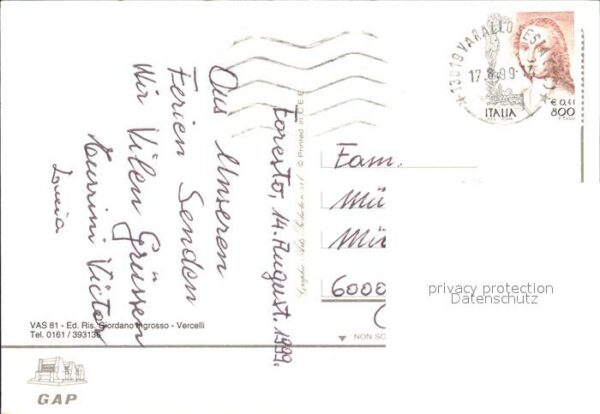 Foresto, 14. August. 1999.
Aus Unseren
Ferien Senden
Wir Vilen Grüssen
Murrini Victor
© Printed in C.E.E.
13019 VARALLO SESIA
17.8.99
ITALIA
€ 0,41
800
Fam.
Mü
Mü
6000
privacy protection
Datenschutz
VAS 81 - Ed. Ris. Giordano Ingrosso - Vercelli
Tel. 0161 / 393136
NON SC
GAP